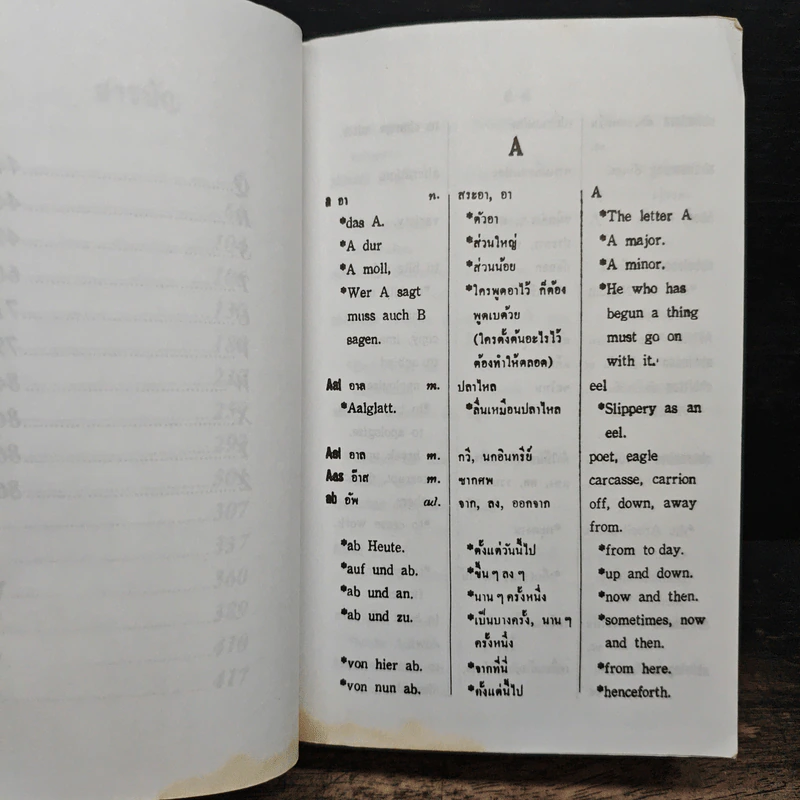 A
a อา n. สระอา, อา A
*das A. *ตัวอา *The letter A
*A dur *ส่วนใหญ่ *A major.
*A moll, *ส่วนน้อย *A minor.
*Wer A sagt *ใครพูดอาไว้ ก็ต้อง *He who has
muss auch B พูดเบด้วย begun a thing
sagen. (ใครตั้งต้นอะไรไว้ must go on
ต้องทำให้ตลอด) with it.
Aal อาล m. ปลาไหล eel
*Aalglatt. *ลื่นเหมือนปลาไหล *Slippery as an
eel.
อาล m. กวี, นกอินทรีย์ poet, eagle
Aas อ๊าส m. ซากศพ carcasse, carrion
ab อัพ ad. จาก, ลง, ออกจาก off, down, away
from.
*ab Heute. *ตั้งแต่วันนี้ไป *from to day.
*auf und ab. *ขึ้น ๆ ลง ๆ *up and down.
*ab und an. *นาน ๆ ครั้งหนึ่ง *now and then.
*ab und zu. *เป็นบางครั้ง, นาน ๆ *sometimes, now
ครั้งหนึ่ง and then.
*von hier ab. *จากที่นี่ *from here.
*von nun ab. *ตั้งแต่นี้ไป *henceforth.